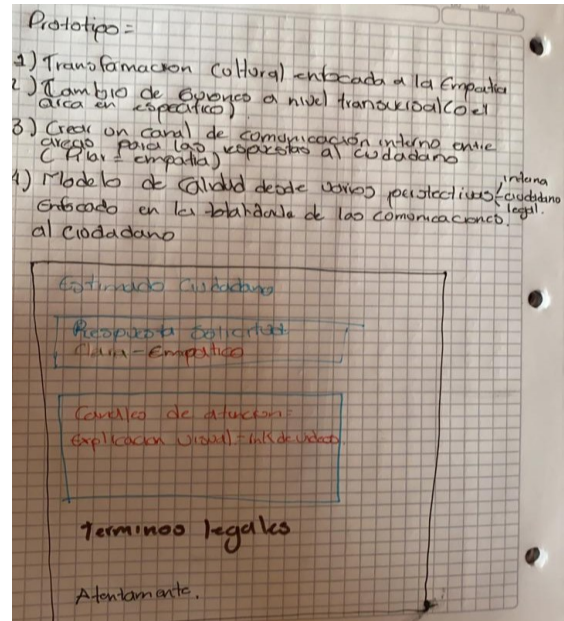 Prototipo =
1) Transfamacion Cultural enfocada a la Empatia
2) Cambio de a nivel transversal (o el
area en especifico)
3) Crear un canal de comunicación interno entre
areas para las respuestas al ciudadano
(Pilar = empatia)
4) Modelo de Calidad desde varios perspectivas interna
ciudadano
legal.
Enfocado en la de las comunicaciones.
al ciudadano
Estimado Ciudadano
Respuesta Solicitud
Clara - Empatica
Canales de atencion
Explicacion visual - link de video
Terminos legales
Atentamente.